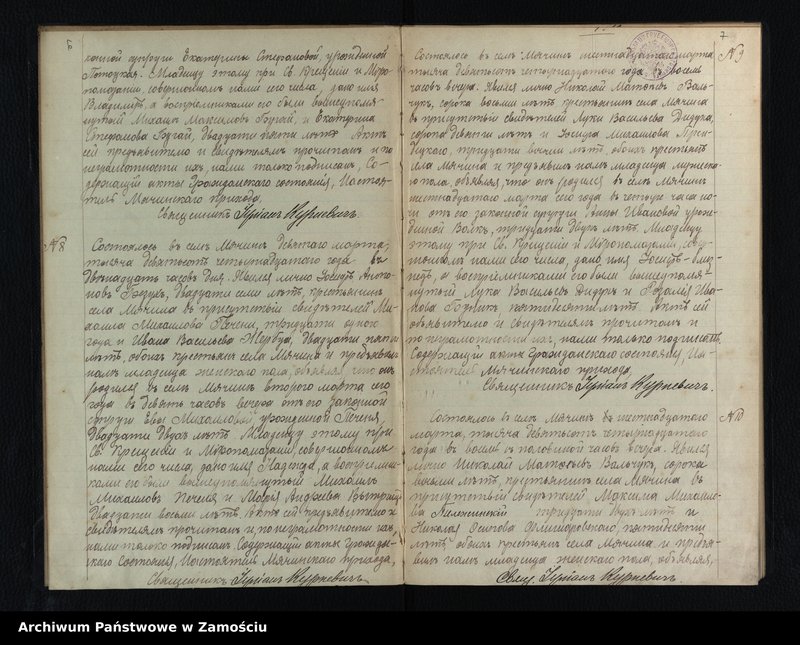 конной супруги Екатерины Стефановой, урожденной
Потоцкая. Младенцу этому при Св. Крещении и Миро-
помазании, совершенном нами сего числа, дано имя
Владимиръ, а восприемниками его были вышеупомя-
нутый Михаилъ Максимовъ Бугай, и Екатерина
Стефанова Бугай, двадцати лѣтъ. Актъ
сей предъявителю и свидѣтелямъ прочитанъ и по
неграмотности ихъ, нами только подписанъ. Со-
держащій акты Гражданскаго состоянія, Настоя-
тель Мячинскаго прихода,
Священникъ Куркевичъ.
№8
Состоялось въ селѣ Мячинѣ девятаго марта,
тысяча девятьсотъ четырнадцатаго года въ
двѣнадцать часовъ дня. Явился лично Іосифъ Анто-
новъ двадцати семи лѣтъ, крестьянинъ
села Мячина въ присутствіи свидѣтелей Ми-
хаила Михайлова Печеня, тридцати одного
года и Ивана Васильева Жербуд, двадцати пяти
лѣтъ, обоихъ крестьянъ села Мячина и предъявилъ
намъ младенца женскаго пола, объявляя что онъ
родился въ селѣ Мячинѣ второго марта сего
года въ девять часовъ вечера отъ его законной
супруги Евы Михайловой урожденной Печеня,
двадцати двухъ лѣтъ. Младенцу этому при
Св. Крещении и Миропомазании, совершенномъ
нами сего числа, дано имя Надежда, а восприемни-
ками его были вышеупомянутый Михаилъ
Михайловъ Печеня и Марія Андреева
двадцати восьми лѣтъ. Актъ сей предъявителю и
свидѣтелямъ прочитанъ и, по неграмотности ихъ,
нами только подписанъ. Содержащій акты Граждан-
скаго Состоянія, Настоятель Мячинскаго прихода,
Священникъ Куркевичъ
7
№9
Состоялось въ селѣ Мячинѣ шестнадцатаго марта
тысяча девятьсотъ четырнадцатаго года въ восемь
часовъ вечера. Явился лично Николай Матѳеевъ Валь-
чукъ, сорока восьми лѣтъ крестьянинъ села Мячина
въ присутствіи свидѣтелей Луки Васильева Дидука,
сорока девяти лѣтъ и Іосифа Михайлова
тридцати восьми лѣтъ, обоихъ крестьянъ
села Мячина и предъявилъ намъ младенца мужеска-
го пола, объявляя, что онъ родился въ селѣ Мячинѣ
шестнадцатаго марта сего года въ четыре часа но-
чи отъ его законной супруги Анны Ивановой урож-
денной Волкъ, тридцати двухъ лѣтъ. Младенцу
этому при Св. Крещении и Миропомазании, совер-
шенномъ нами сего числа, дано имя Іосифъ
а восприемниками его были вышеупомя-
нутый Лука Васильевъ Дидукъ и Розалія Ива-
нова пятидесяти лѣтъ. Актъ сей
объявителю и свидѣтелямъ прочитанъ и
по неграмотности ихъ, нами только подписанъ.
Содержащій акты Гражданскаго состоянія, На-
стоятель Мячинскаго прихода,
Священникъ Куркевичъ.
№10
Состоялось въ селѣ Мячинѣ шестнадцатаго
марта, тысяча девятьсотъ четырнадцатаго
года въ восемь съ половиной часовъ вечера. Явился
лично Николай Матѳеевъ Вальчукъ, сорока
восьми лѣтъ, крестьянинъ села Мячина въ
присутствіи свидѣтелей Максима Михайло-
ва тридцати двухъ лѣтъ и
Николая Осипова пятидесяти
лѣтъ, обоихъ крестьянъ села Мячина и предъя-
вилъ намъ младенца женскаго пола, объявляя,
Свящ. Куркевичъ
Archiwum Państwowe w Zamościu